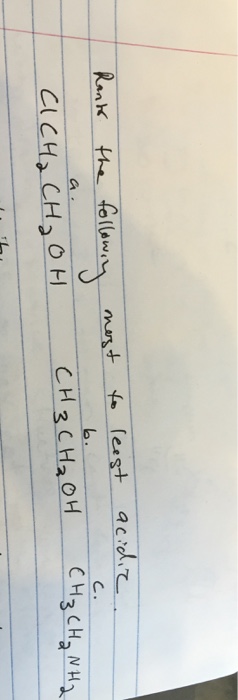 Rank the following most to least acidic.
a. b. c.
ClCH₂CH₂OH CH3CH₂OH CH₃CH₂NH₂